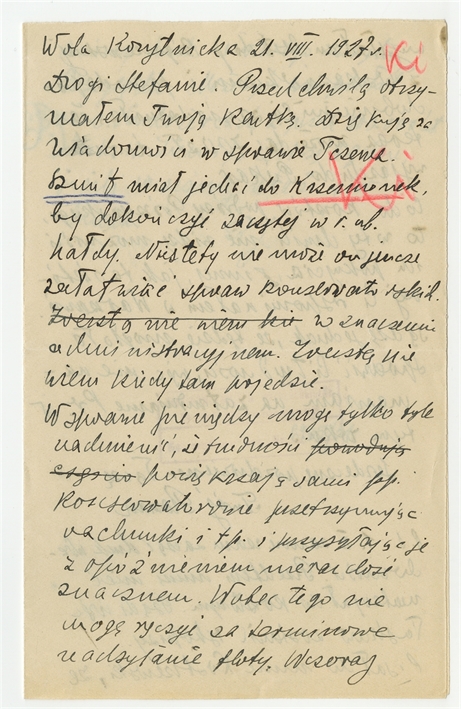 Wola Korytnicka 21. VIII. 1927 r.
Ki
Drogi Stefanie. Przed chwilą otrzy-
małem Twoją kartkę. Dziękuję za
wiadomości w sprawie Tczewa.
Szmit miał jechać do Krzemieniek,
Ki
by dokończyć zaczętej w r. ub.
hałdy. Niestety nie może on jeszcze
załatwiać spraw konserwatorskich
Zresztą nie wiem kie w znaczeniu
administracyjnem. Zresztą nie
wiem kiedy tam pojedzie.
W sprawie pieniędzy mogę tylko tyle
nadmienić, iż trudności powodują
częścio powiększają sami pp.
Konserwatorowie przetrzymując
rachunki i t p. i przysyłając je
z opóźnieniem nieraz dość
znacznem. Wobec tego nie
mogę ręczyć za terminowe
nadsyłanie floty. Wczoraj